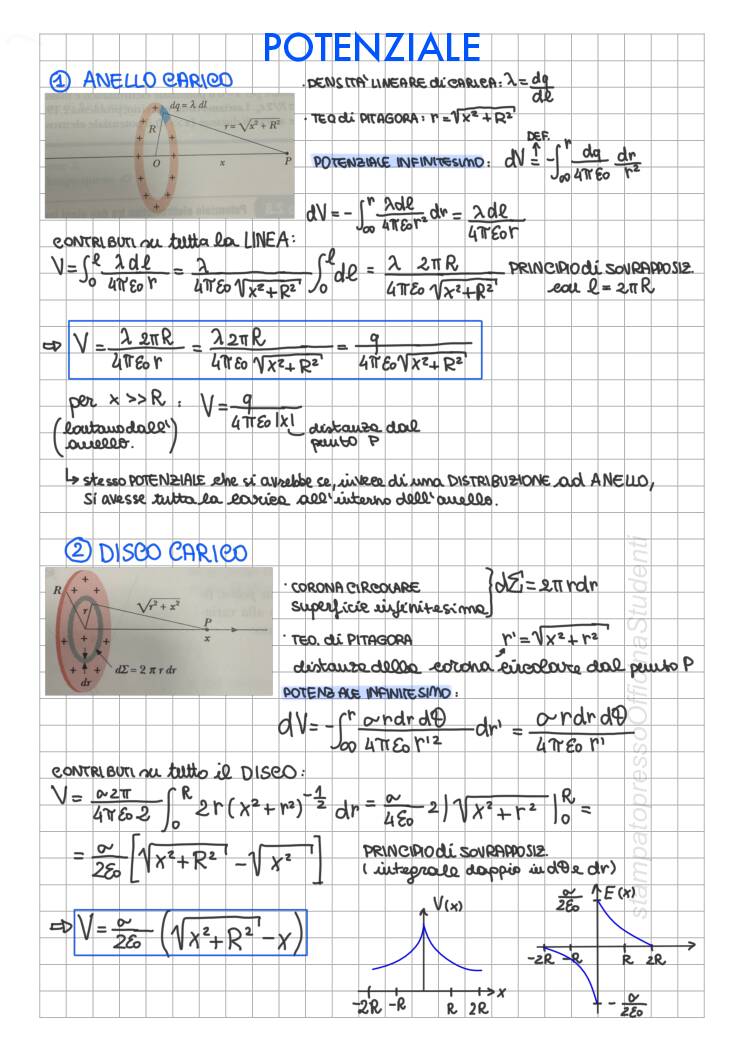 POTENZIALE
① ANELLO CARICO
· DENSITA' LINEARE di CARICA: λ = dq/dl
dq = λ dl
R
r = √x² + R²
O
x
P
· TEO di PITAGORA: r = √x² + R²
POTENZIALE INFINITESIMO: dV = -∫∞^r dq/4πε₀ dr/r²
DEF.
dV = -∫∞^r λdl/4πε₀r² dr = λdl/4πε₀r
CONTRIBUTI su tutta la LINEA:
V = ∫₀^l λdl/4πε₀r = λ/4πε₀√x²+R² ∫₀^l dl = λ 2πR/4πε₀√x²+R² PRINCIPIO di SOVRAPPOSIZ.
con l = 2πR
⇒ V = λ 2πR/4πε₀r = λ2πR/4πε₀√x²+R² = q/4πε₀√x²+R²
per x >> R : V = q/4πε₀|x|
(lontano dall' anello.)
distanza dal
punto P
↳ stesso POTENZIALE che si avrebbe se, invece di una DISTRIBUZIONE ad ANELLO,
si avesse tutta la carica all'interno dell'anello.
② DISCO CARICO
R
r
√r² + x²
P
x
dΣ = 2 π r dr
dr
· CORONA CIRCOLARE
superficie infinitesima } dΣ = 2πrdr
· TEO. di PITAGORA r' = √x² + r²
distanza della corona circolare dal punto P
POTENZ ALE INFINITESIMO:
dV = -∫∞^r σrdrdθ/4πε₀r'² dr' = σrdrdθ/4πε₀r'
CONTRIBUTI su tutto il DISCO:
V = σ2π/4πε₀2 ∫₀^R 2r(x²+r²)^-1/2 dr = σ/4ε₀ 2|√x²+r²|₀^R =
= σ/2ε₀ [√x²+R² - √x²]
PRINCIPIO di SOVRAPPOSIZ.
(integrale doppio in dθ e dr)
⇒ V = σ/2ε₀ (√x²+R² - x)
V(x)
-2R -R R 2R x
σ/2ε₀ E(x)
-2R -R R 2R
-σ/2ε₀
stampatopressoOfficinaStudenti